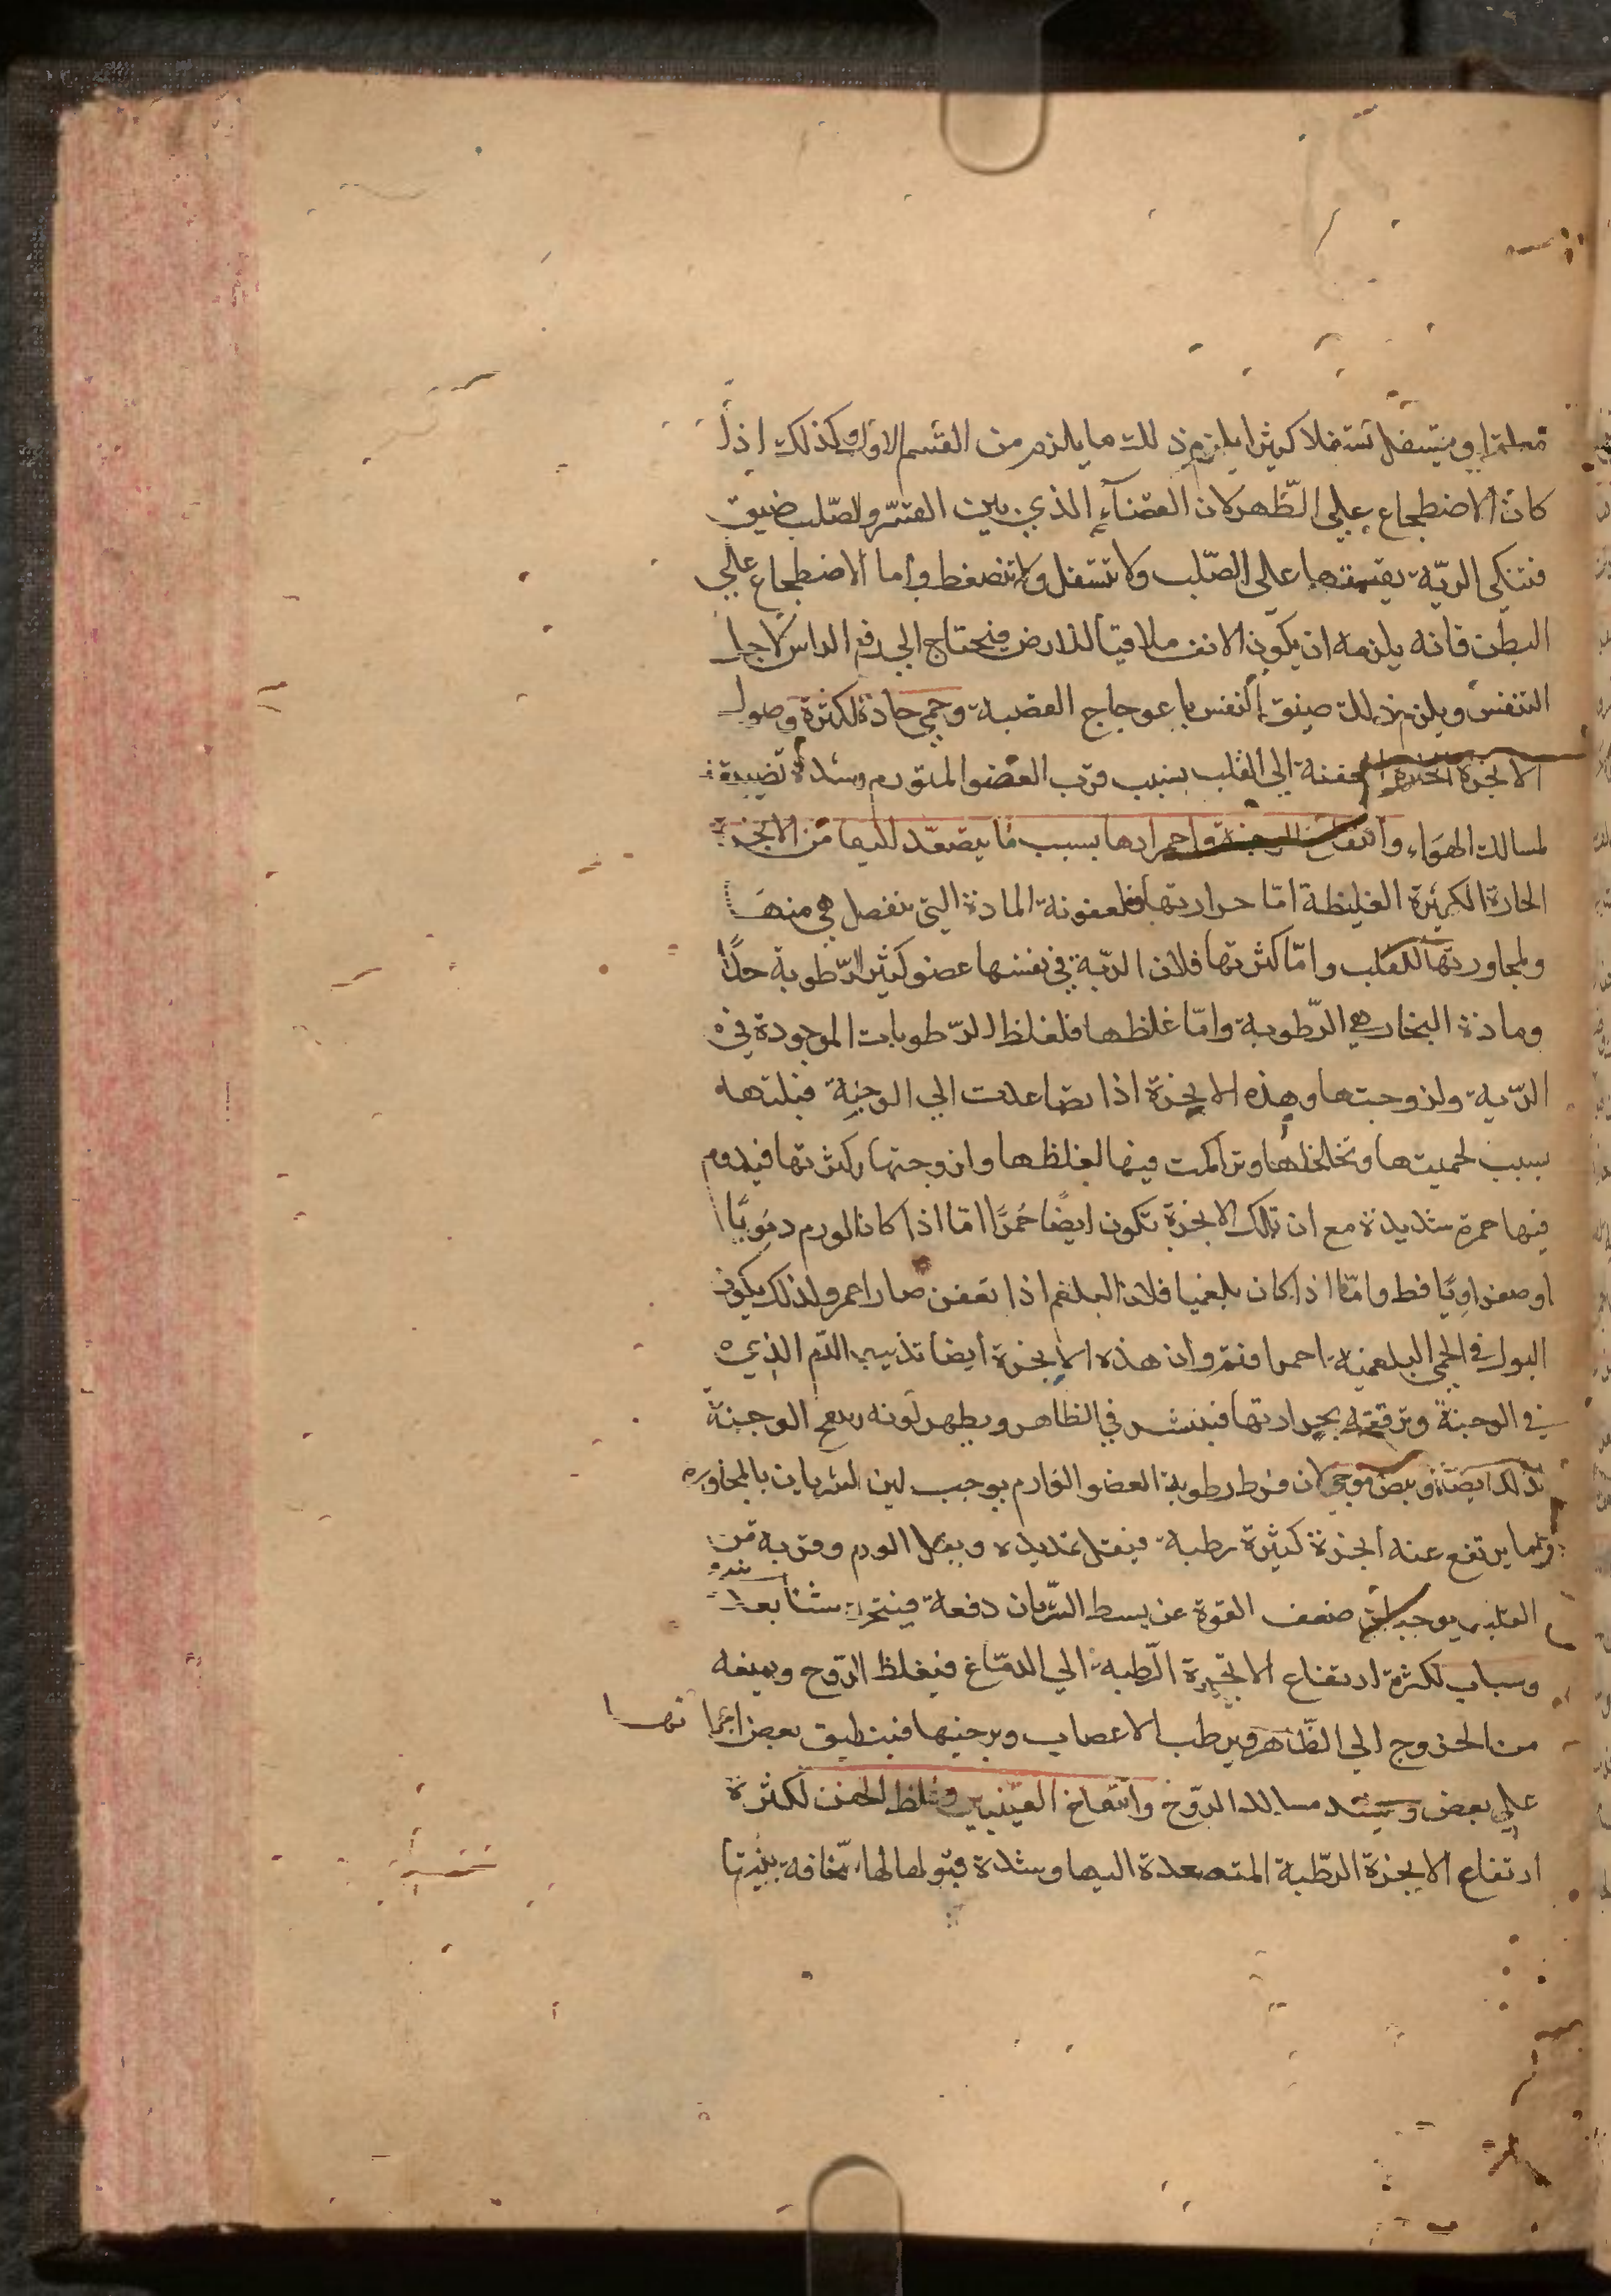 معلقا او يتسفل تسفلا كثيرا يلزم ذلك ما يلزم من القسم الاول وكذلك اذا
كان الاضطجاع علي الظّهر لان الفضآء الذي بين القسّ والصّلب ضيق
فتتكي الريّة بقسمتها علي الصّلب ولا تستفل ولا تنضغط واما الاضطجاع علي
البطن فانه يلزمه ان يكون الانف ملاقيا للارض فيحتاج الي رفع الراس لاجل
التنفس ويلزم ذلك ضيق النفس باعوجاج القصبة وحمي حادة لكثرة وصول
الابخرة الحارة العفنة الي القلب بسبب قرب العضو المتورم وشدة تضييقه
لمسالك الهواء وانتفاخ الوجنة واحمرارها بسبب ما يتصعّد اليها من الابخرة
الحارة الكثيرة الغليظة امّا حرارتها فلعفونة المادة التي تنفصل هي منها
ولمجاورتها للقلب وامّا كثرتها فلان الريّة في نفسها عضو كثير الرّطوبة جدًّا
ومادة البخار هي الرّطوبة وامّا غلظها فلغلظ الرّطوبات الموجودة في
الرّية ولزوجتها وهذه الابخرة اذا تصاعدت الي الوجنة قبلتها
بسبب لحميتها وتخلخلها وتراكمت فيها لغلظها ولزوجتها وكثرتها فيدوم
فيها حمرة شديدة مع ان تلك الابخرة تكون ايضًا حُمرًا امّا اذا كان الورم دمَويًّا
او صفراويًّا فط وامّا اذا كان بلغميا فلان البلغم اذا تعفن صار احمر ولذلك يكون
البول في الحمي البلغمية احمرا فتم وان هذه الابخرة ايضا تذيب الدّم الذي
في الوجنة وترققه بحرارتها فينتشر في الظاهر ويظهر لونه وسع الوجنة
لذلك ايضا ونبض موجي لان فرط رطوبة العضو الوارم يوجب لين الشريان بالمجاورة
وبما يرتفع عنه ابخرة كثيرة رطبة فيقل تمديده وبعظم الورم وقربه من
القلب يوجب ضعف القوة عن بسط الشّريان دفعة فيتحرك شيئا بعد
وسبات لكثرة ارتفاع الابخرة الرّطبة الي الدمّاغ فيغلظ الرّوح ويمنعه
من الخروج الي الظّاهر ويرطب الاعصاب ويرخيها فينطبق بعض اجزائها
علي بعض وينسد مسالك الرّوح وانتفاخ العينين وغلظ الجفن لكثرة
ارتفاع الابخرة الرّطبة المتصعدة اليها وشدة قبولها لها سّخافة بنيتها